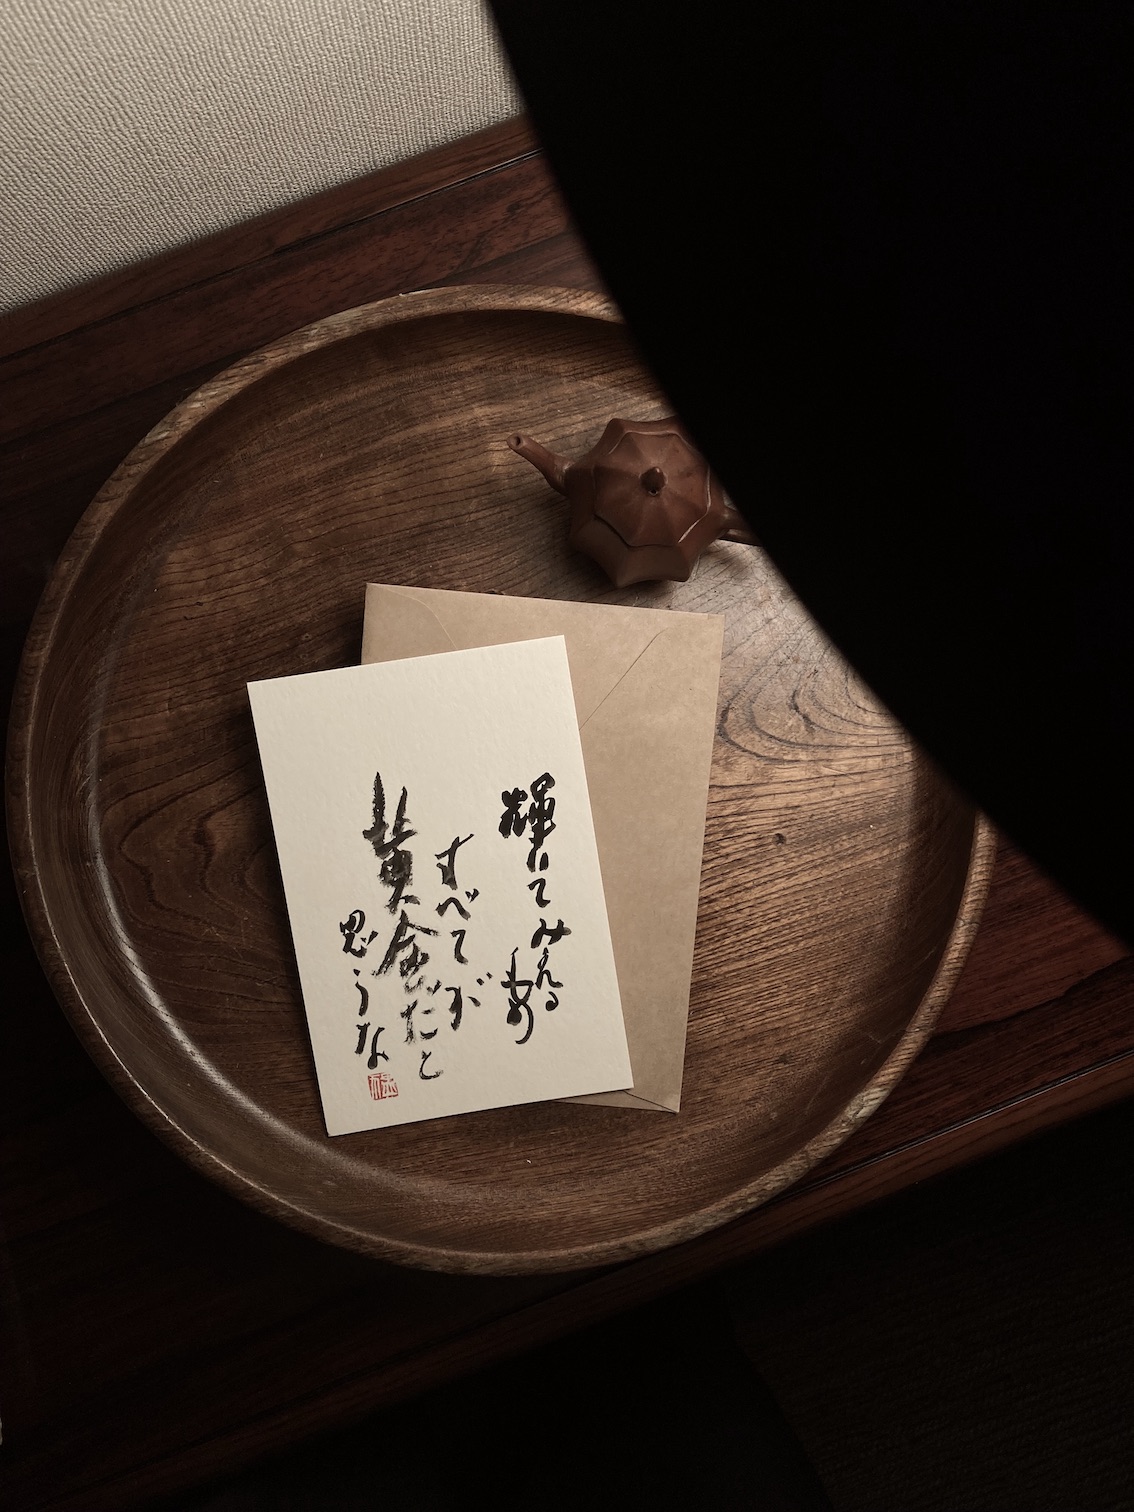 輝いてみえる
すべてが
黄金だと
思うな